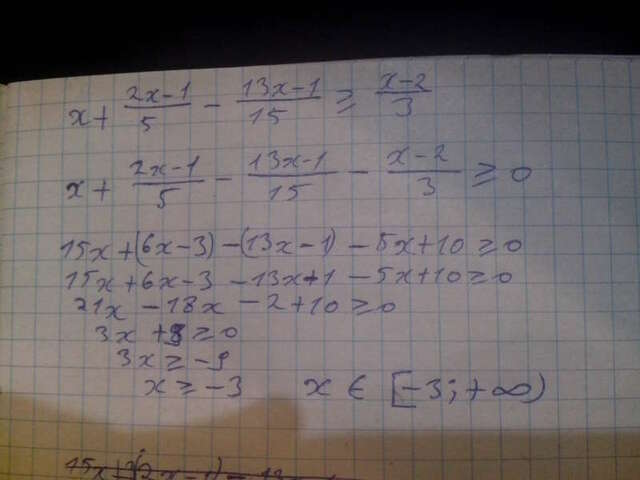 x + \frac{2x-1}{5} - \frac{13x-1}{15} ≥ \frac{x-2}{3}
x + \frac{2x-1}{5} - \frac{13x-1}{15} - \frac{x-2}{3} ≥ 0
15x + (6x-3) - (13x-1) - 5x+10 ≥ 0
15x+6x-3 -13x+1 -5x+10 ≥ 0
21x -18x -2+10 ≥ 0
3x + ≥ 0
3x ≥ -9
x ≥ -3 x ∈ [-3; +∞)